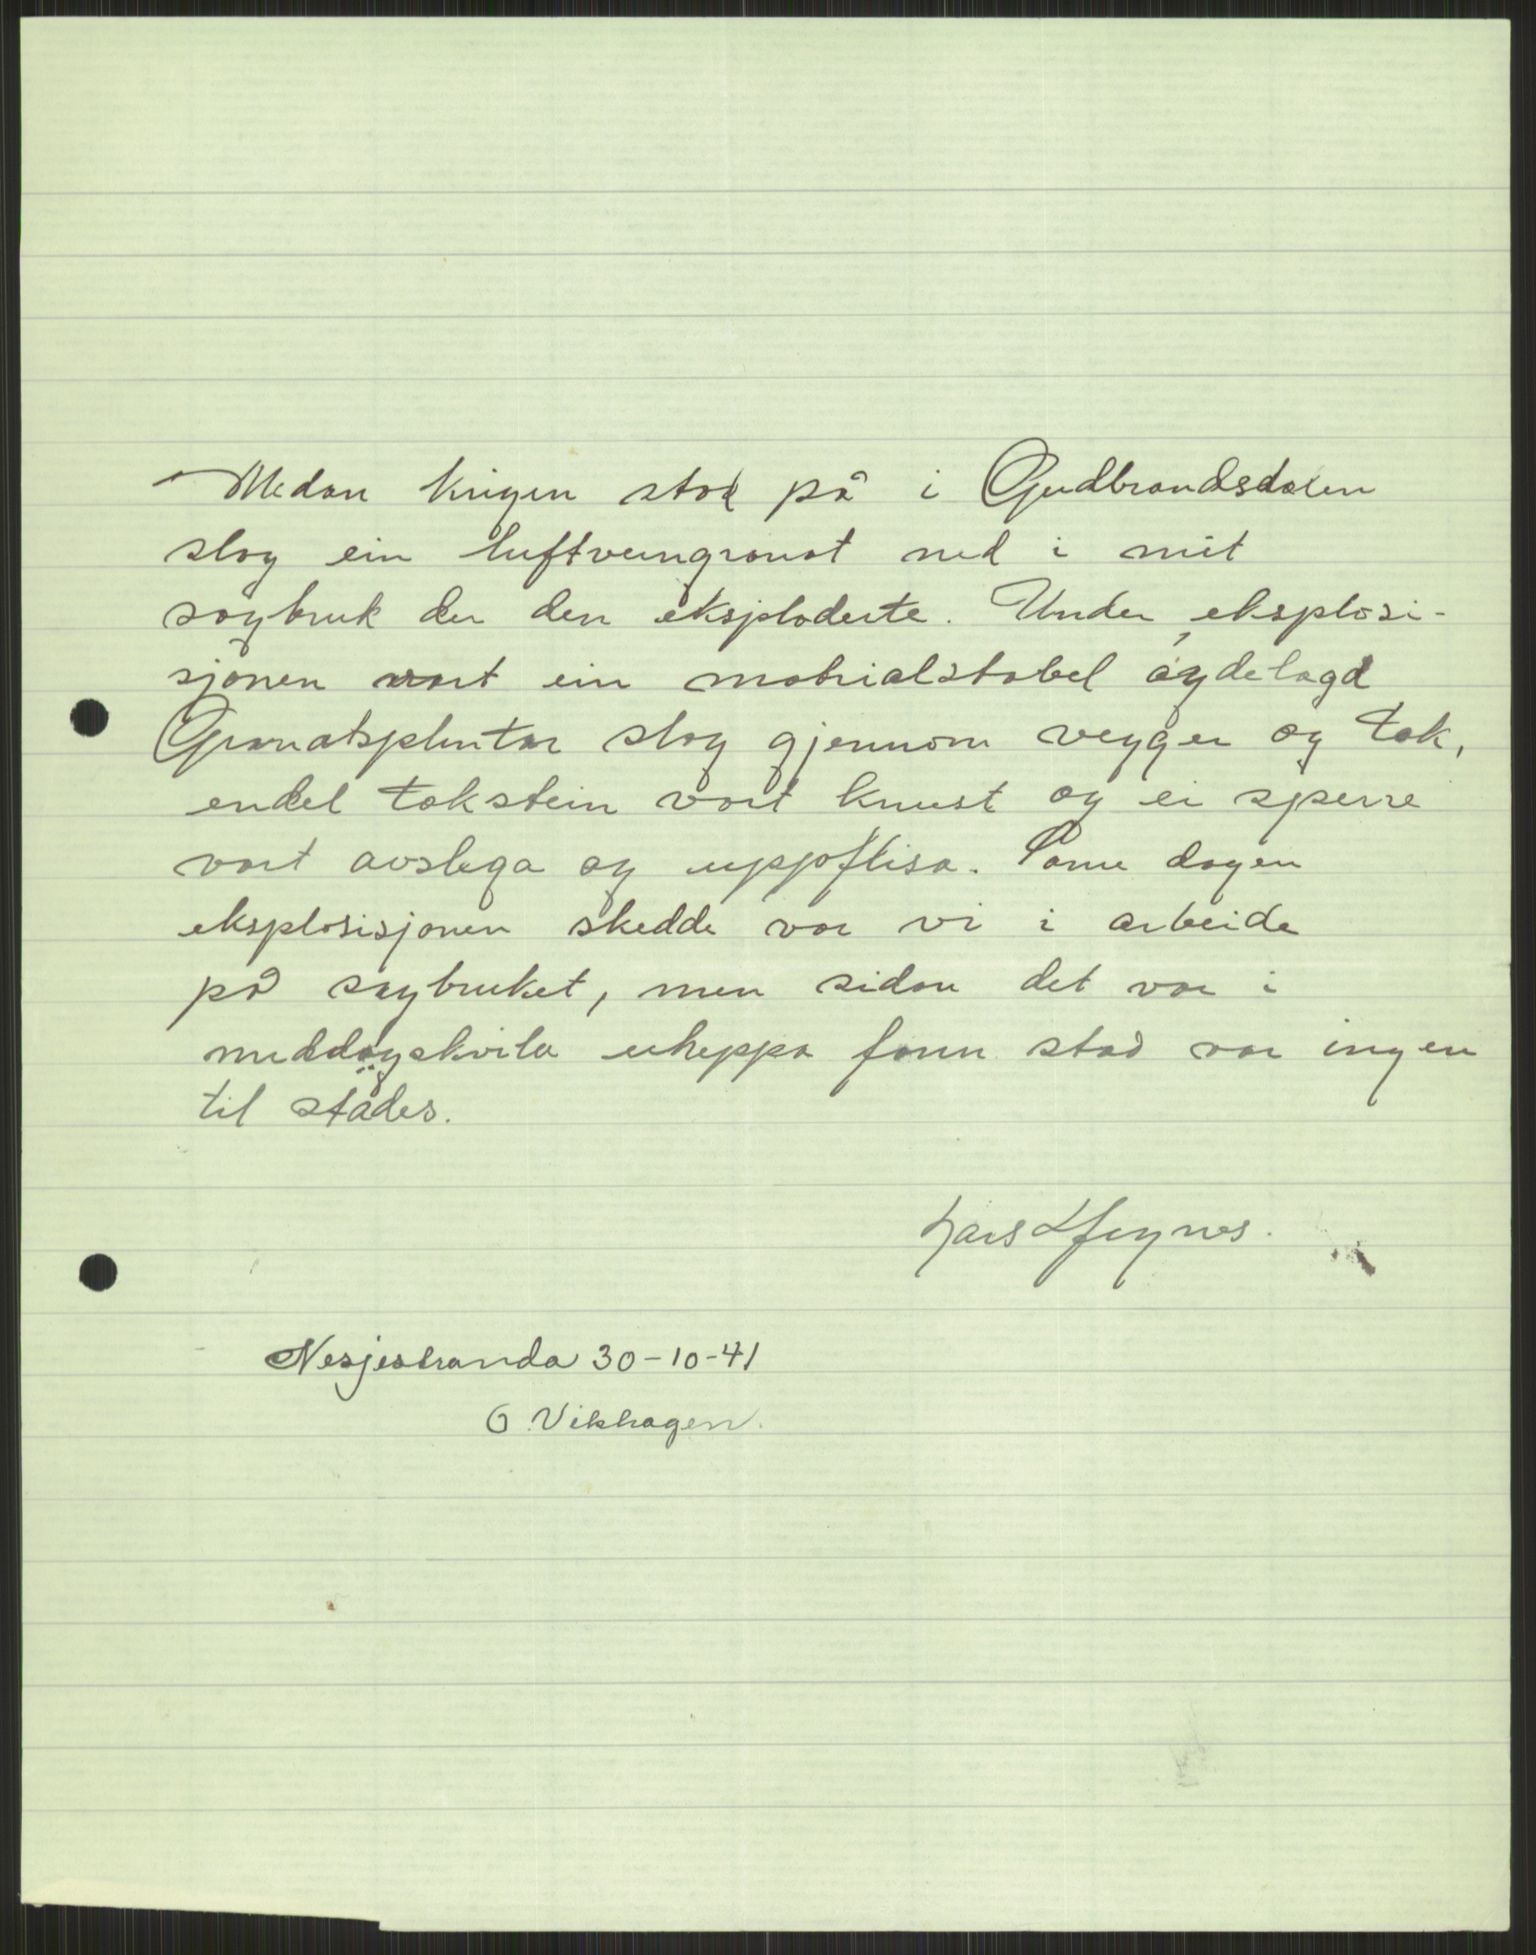 Medan krigen stod på i Gudbrandsdalen
slog ein luftverngranat ned i mit
sagbruk der den eksploderte. Under eksplosi-
sjonen vart ein matrialstabel øydelagd
Granatsplintar slog gjennom vegger og tak,
endel takstein vart knust og ei sperre
vart avslega og uppflisa. Same dagen
eksplosisjonen skedde var vi i arbeide
på sagbruket, men sidan det var i
middagskvila uheppa fann stad var ingen
til stades.
Lars
Nesjestranda 30-10-41
O. Vikhagen.